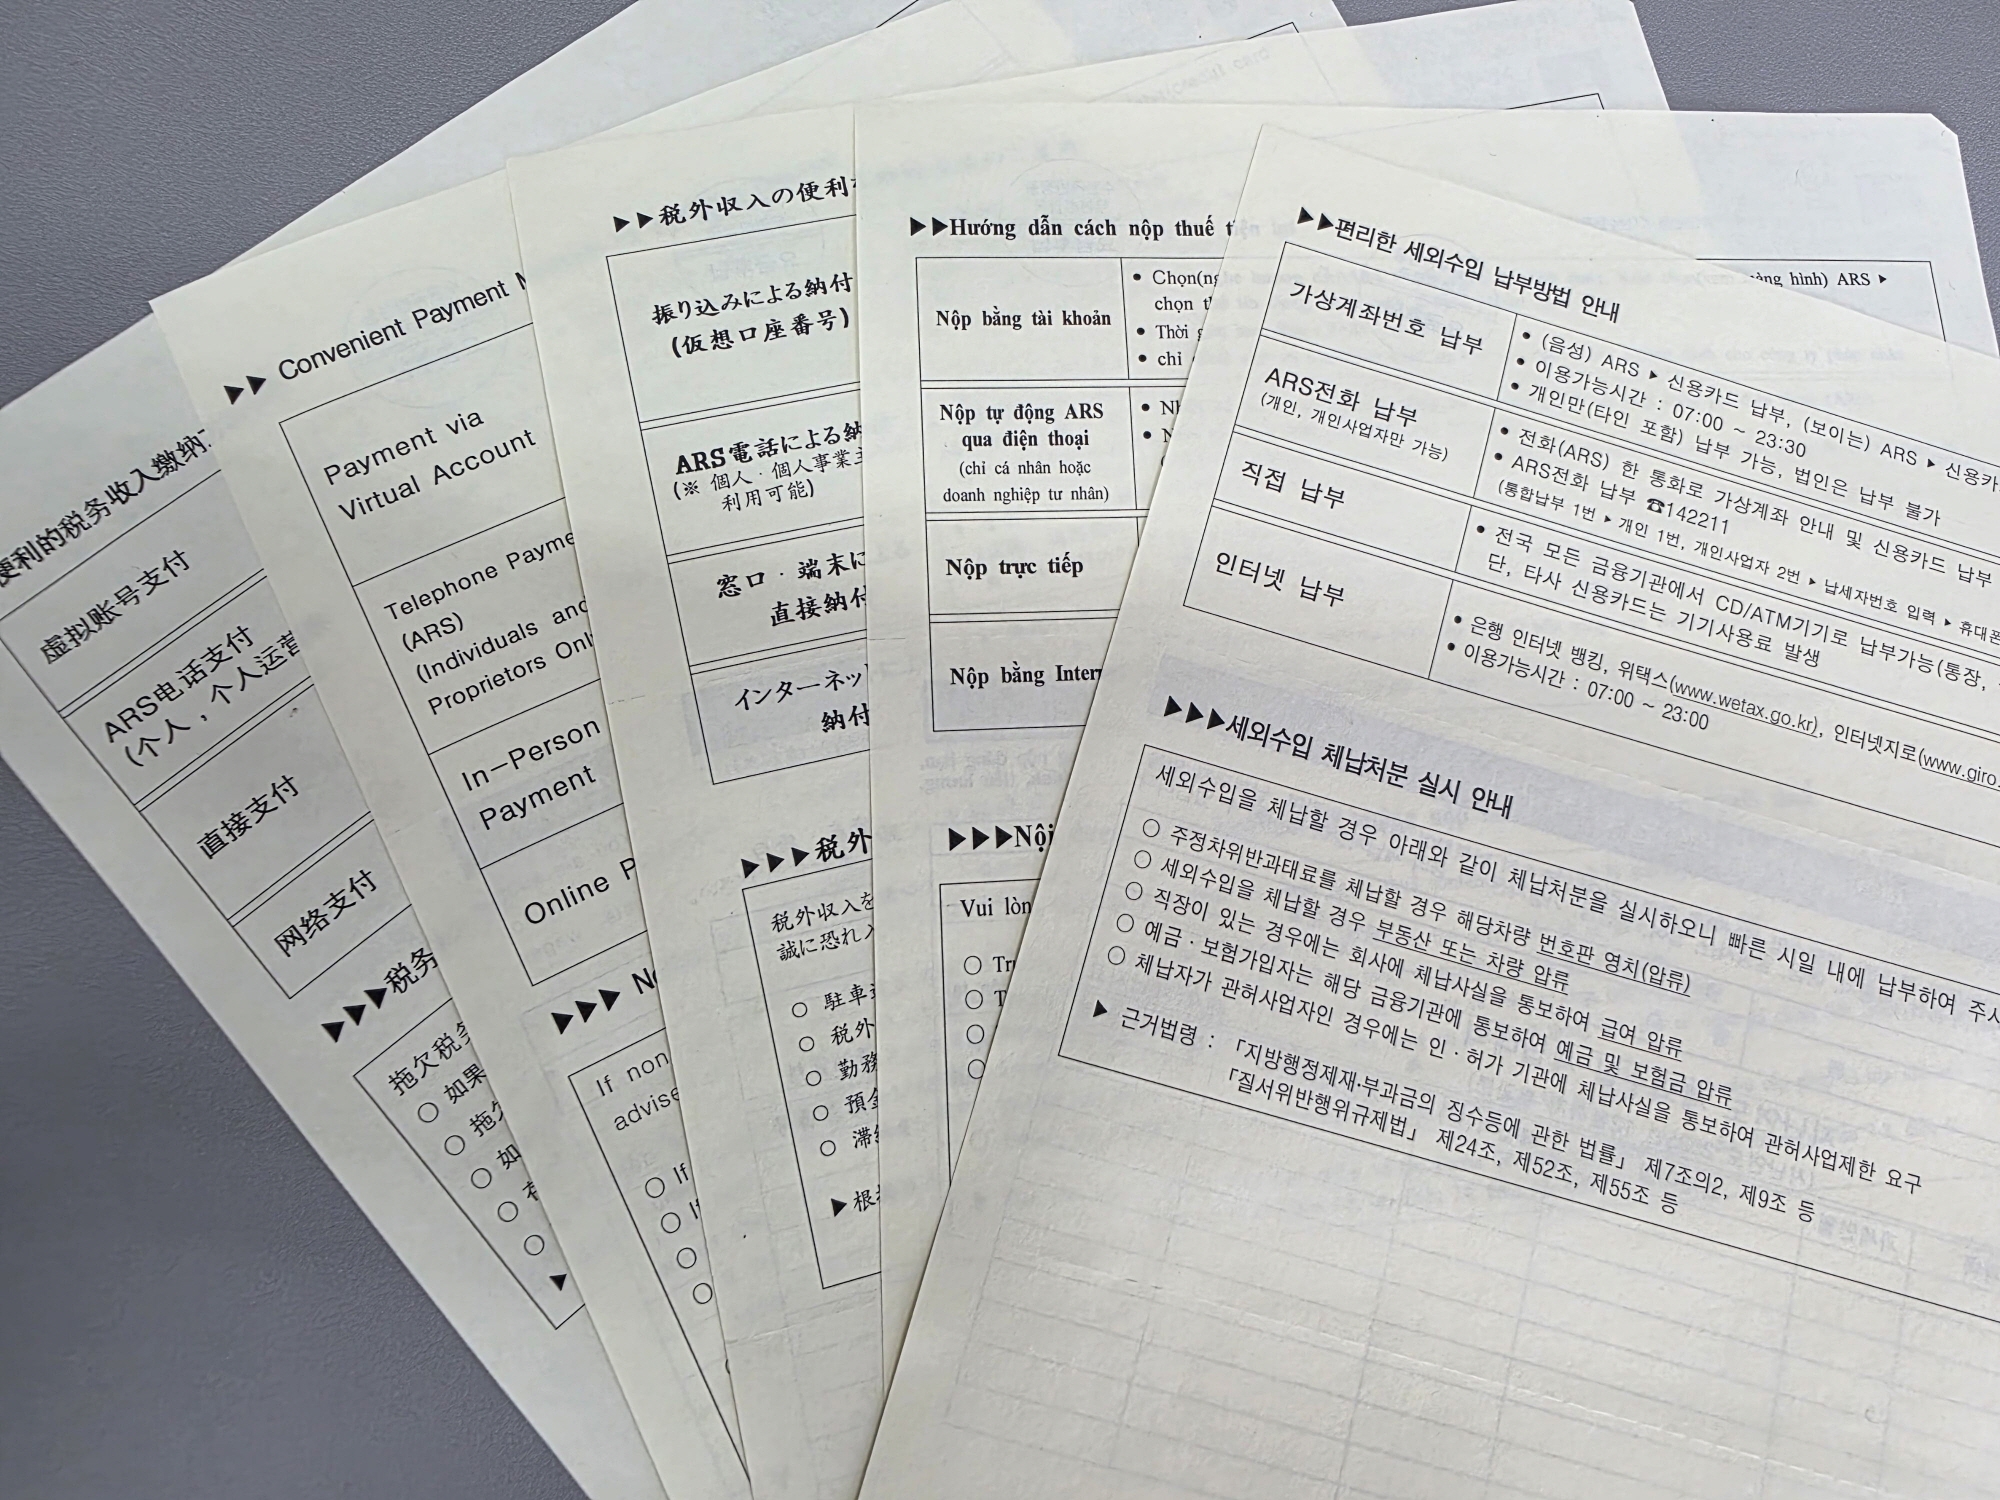 便利的税务收入缴纳
虚拟账号支付
ARS电话支付
(个人，个人运营
直接支付
网络支付
▶▶▶税务
拖欠税务
○ 如果
○ 拖欠
○ 如
○
○
▶
▶▶ Convenient Payment
Payment via
Virtual Account
Telephone Payme
(ARS)
(Individuals and
Proprietors Onl
In-Person
Payment
Online P
▶▶▶ No
If non
advise
○ If
○ If
○
○
▶▶税外収入の便利
振り込みによる納付
(仮想口座番号)
ARS電話による納
(※ 個人・個人事業主
利用可能)
窓口・端末に
直接納付
インターネッ
納付
▶▶▶税外
税外収入を
誠に恐れ入
○ 駐車
○ 税外
○ 勤務
○ 預金
○ 滞納
▶根拠
▶▶Hướng dẫn cách nộp thuế
Nộp bằng tài khoản
• Chọn(ng
chọn th
• Thời g
• chỉ
àng hình) ARS ▶
Nộp tự động ARS
qua điện thoại
(chỉ cá nhân hoặc
doanh nghiệp tư nhân)
• Nh
• N
Nộp trực tiếp
Nộp bằng Inter
▶▶▶Nội
Vui lòn
○ Tr
○ T
○
○
▶▶편리한 세외수입 납부방법 안내
가상계좌번호 납부
• (음성) ARS ▶ 신용카드 납부, (보이는) ARS ▶ 신용카
• 이용가능시간 : 07:00 ~ 23:30
• 개인만(타인 포함) 납부 가능, 법인은 납부 불가
ARS전화 납부
(개인, 개인사업자만 가능)
• 전화(ARS) 한 통화로 가상계좌 안내 및 신용카드 납부
• ARS전화 납부 ☎142211
(통합납부 1번 ▶ 개인 1번, 개인사업자 2번 ▶ 납세자번호 입력 ▶ 휴대폰
직접 납부
• 전국 모든 금융기관에서 CD/ATM기기로 납부가능(통장,
단, 타사 신용카드는 기기사용료 발생
인터넷 납부
• 은행 인터넷 뱅킹, 위택스(www.wetax.go.kr), 인터넷지로(www.giro.
• 이용가능시간 : 07:00 ~ 23:00
▶▶▶세외수입 체납처분 실시 안내
세외수입을 체납할 경우 아래와 같이 체납처분을 실시하오니 빠른 시일 내에 납부하여 주시
○ 주정차위반과태료를 체납할 경우 해당차량 번호판 영치(압류)
○ 세외수입을 체납할 경우 부동산 또는 차량 압류
○ 직장이 있는 경우에는 회사에 체납사실을 통보하여 급여 압류
○ 예금·보험가입자는 해당 금융기관에 통보하여 예금 및 보험금 압류
○ 체납자가 관허사업자인 경우에는 인·허가 기관에 체납사실을 통보하여 관허사업제한 요구
▶ 근거법령 : 「지방행정제재·부과금의 징수등에 관한 법률」 제7조의2, 제9조 등
「질서위반행위규제법」 제24조, 제52조, 제55조 등